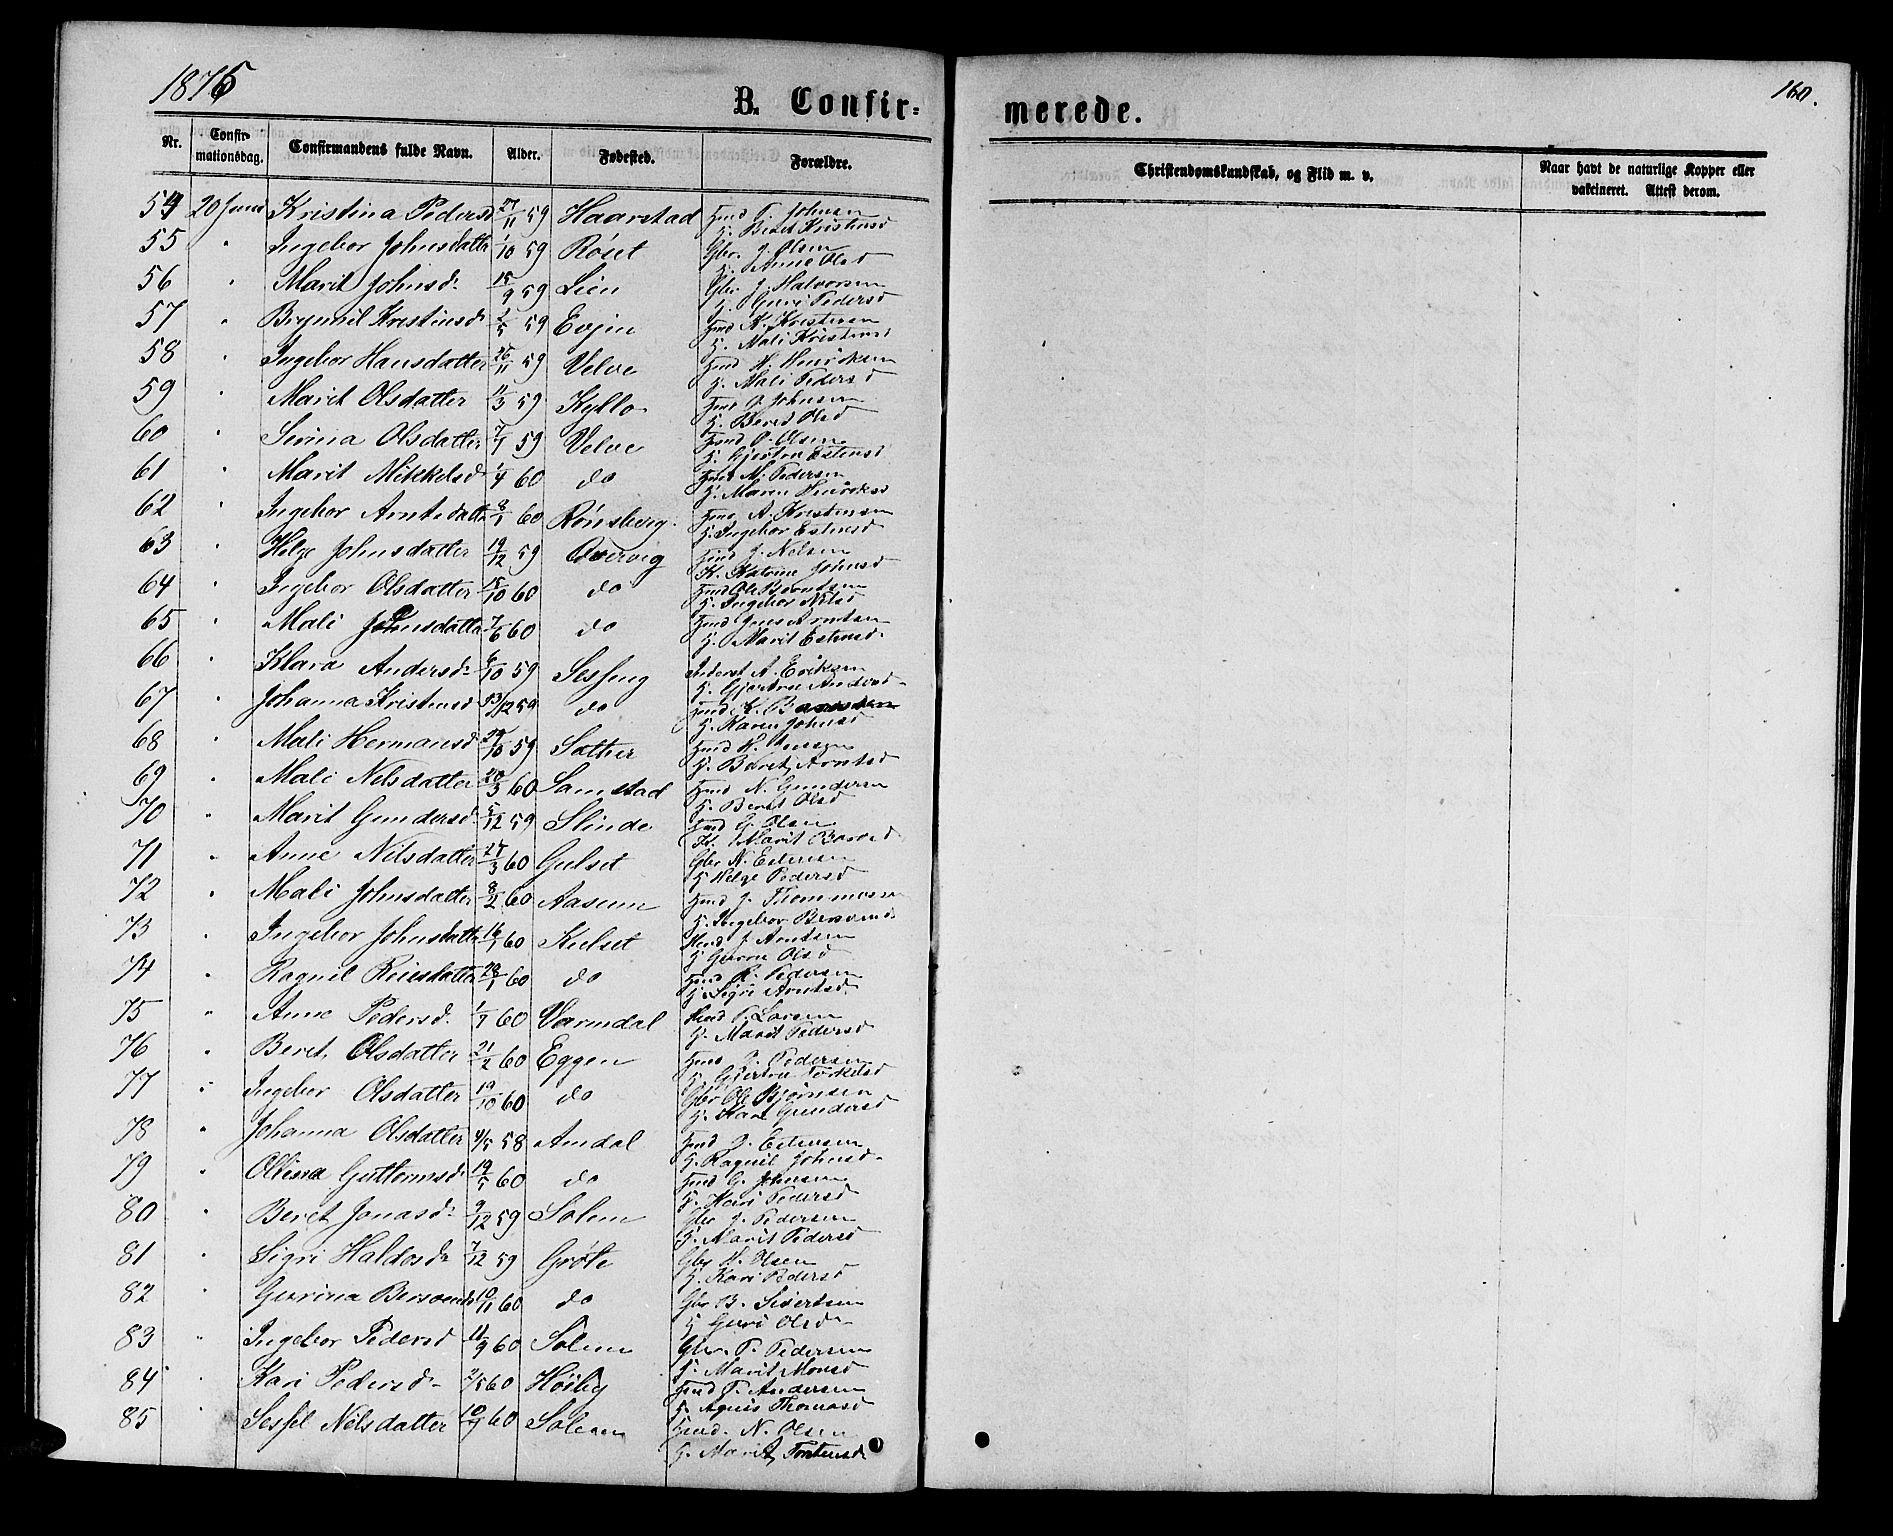 1875
160.
B. Confir=
merede.
Nr. Confir-mationsdag. Confirmandens fulde Navn. Alder. Fødested. Forældre.
Christendomskundskab, og Flid m. v.
Naar havt de naturlige Kopper eller
vakcineret. Attest derom.
54 20 Juni Kristina Pedersd 27/11 59 Haarstad Hmd P. Johnsen
H. Beret Kristensd
55 " Ingebor Johnsdatter 1/10 59 Røset Gbr. J. Olsen
H. Anne Olsd
56 " Marit Johnsd. 15/9 59 Lien Gbr J. Halvorsen
H. Guri Pedersd
57 " Brynnil Kristensd 2/5 59 Evjen Hmd K. Kristensen
H. Mali Kristensd
58 " Ingebor Hansdatter 26/11 59 Velve Hmd H. Henriksen
H. Mali Pedersd
59 " Marit Olsdatter 11/3 59 Kyllo Hmd O Johnsen
H. Beret Olsd
60 " Serina Olsdatter 7/7 59 Velve Hmd O. Olsen
H. Gjertru Estensd
61 " Marit Mikkelsd 1/4 60 do Hmd M. Pedersen
H. Maren Henriksd
62 " Ingebor Arntsdatter 8/1 60 Rønsbevig Hmd A. Kristensen
H. Ingebor Estensd
63 " Helge Johnsdatter 19/12 59 Overvig Hmd J. Nelsen
K. Katrine Johnsd
64 " Ingebor Olsdatter 15/10 60 do Hmd Ole Berntsen
H. Ingebor Nilsd
65 " Mali Johnsdatter 7/6 60 do Hmd Jens Arntsen
H. Marit Estensd.
66 " Klara Andersd. 6/10 59 Sesseng Inderst A. Eriksen
H. Gjertru Andersd
67 " Johanna Kristensd 13/12 59 do Hmd K.
H. Karen Johnsd
68 " Mali Hermansd 29/10 59 Sæther Hmd H. Jensen
H. Beret Arntsd
69 " Mali Nilsdatter 20/3 60 Samstad Hmd N. Gundersen
H. Beret Olsd
70 " Marit Gundersd. 5/12 59 Slinde Hmd G. Olsen
H. Marit
71 " Anne Nilsdatter 27/3 60 Gulset Gbr N. Estensen
H Helge Pedersd
72 " Mali Johnsdatter 8/2 60 Aasenn Hmd J. Thommassen
H. Ingebor
73 " Ingebor Johnsdatter 16/1 60 Kulset Hmd J Arntsen
H Guren Olsd
74 " Ragnil Reiersdatter 28/1 60 do Hmd R. Pedersen
H. Sigri Arntsd.
75 " Anne Pedersd. 1/7 60 Varmdal Hmd P. Larsen
H. Marit Pedersd
76 " Beret Olsdatter 21/2 60 Eggen Hmd O. Pedersen
H. Gjertru Torkelsd
77 " Ingebor Olsdatter 19/10 60 do Gbr Ole Bjørnsen
H. Kari Gundersd
78 " Johanna Olsdatter 4/5 58 Amdal Hmd O. Estensen
H. Ragnil Johnsd.
79 " Olina Guttormsd. 19/5 60 do Hmd G. Johnsen
H. Kari Pedersd
80 " Beret Jonasd. 9/12 59 Solem Gbr J. Pedersen
H. Marit Pedersd
81 " Sigri Haldosd. 7/12 59 Grøte Gbr H. Olsen
H. Kari Pedersd
82 " Gurina Bersvend 10/11 60 do Gbr B. Sivertsen
H Guri Olsd.
83 " Ingebor Pedersd 11/9 60 Solem Gbr. P. Pedersen
H. Marit Monsd
84 " Kari Pedersd. 2/5 60 Høiby Hmd P. Andersen
H. Agnis Thomasd
85 " Sessel Nilsdatter 10/7 60 Solem Hmd. N. Olsen
H. Marit Tostensd